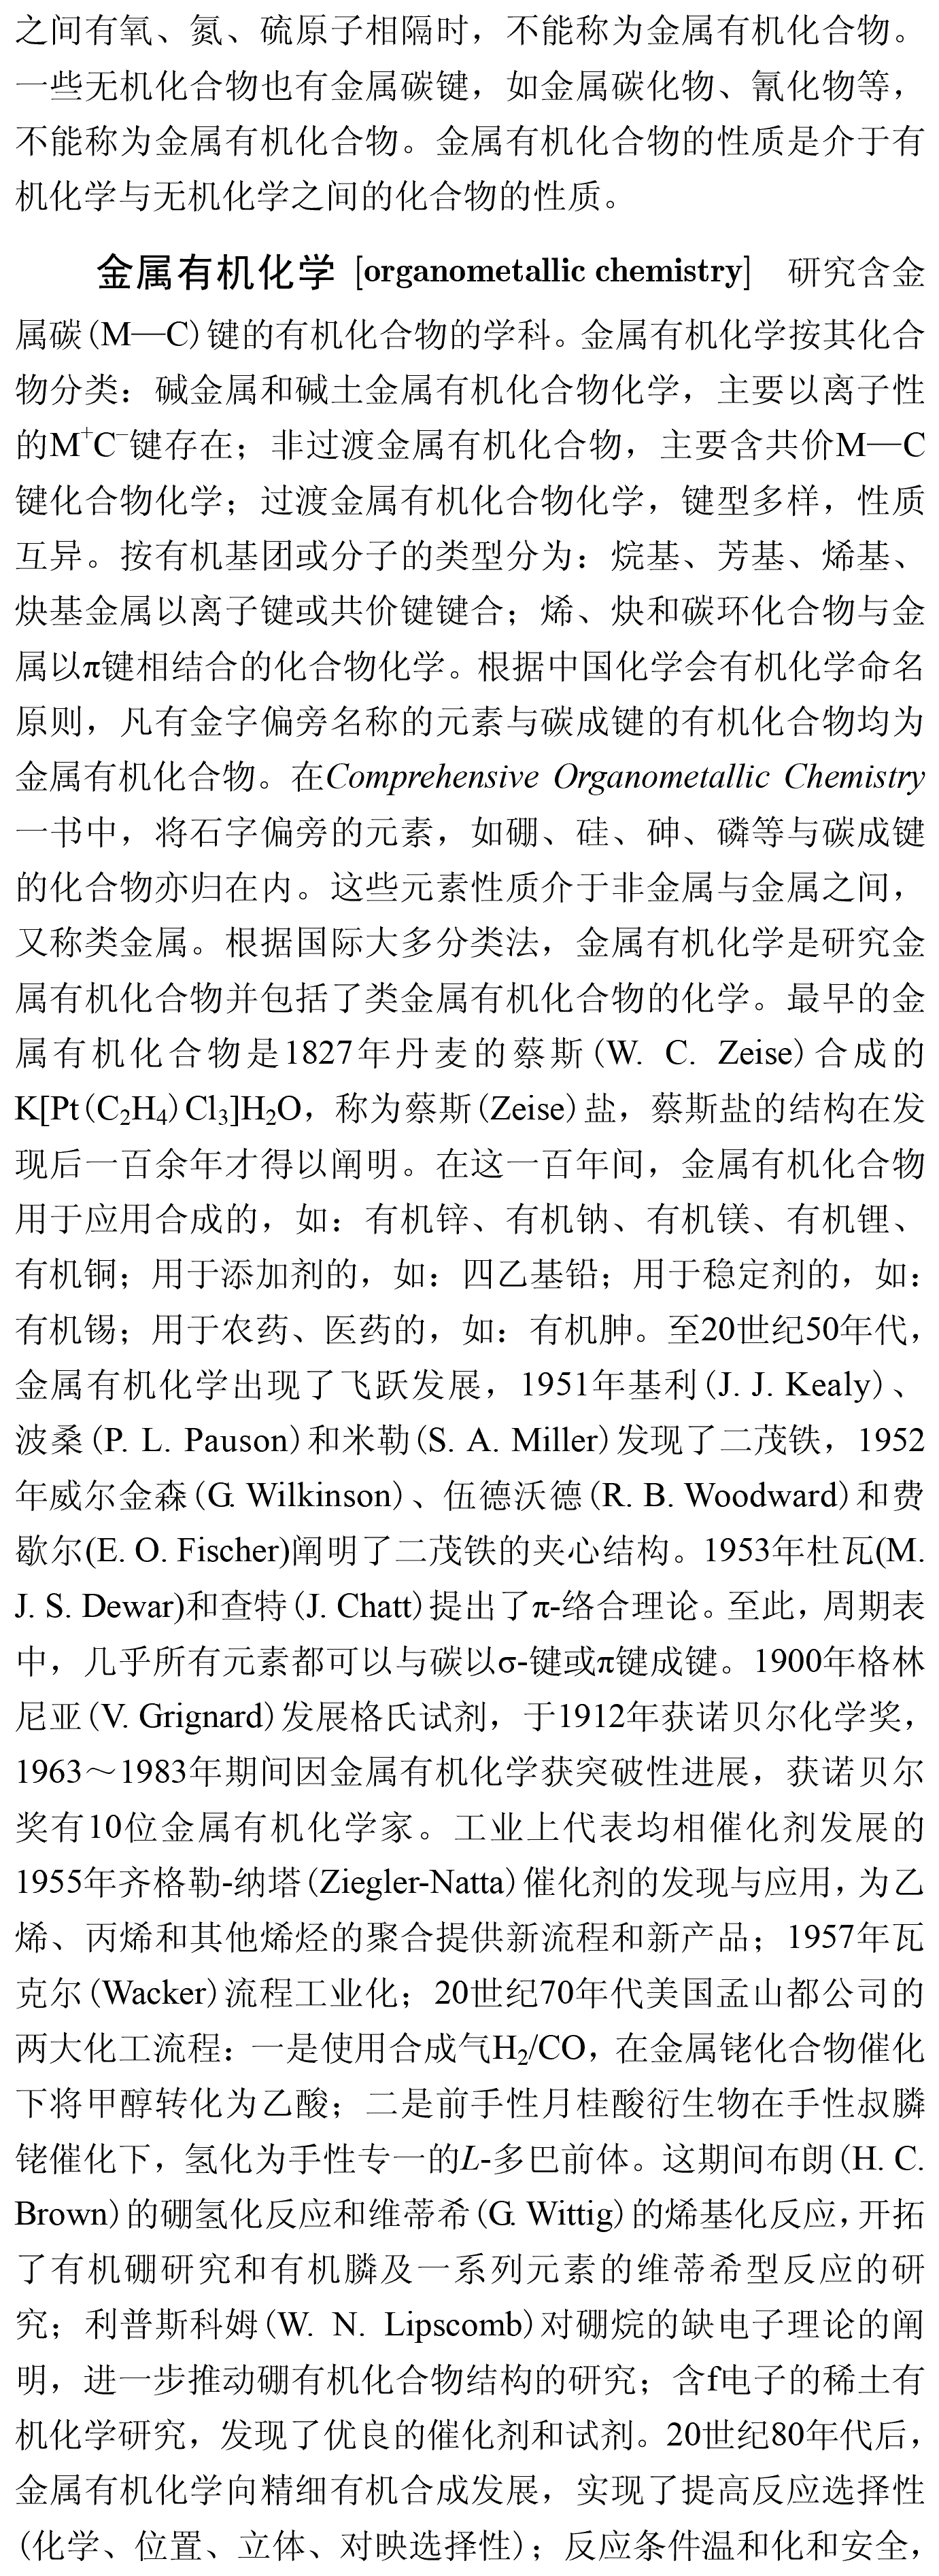 之间有氧、氮、硫原子相隔时，不能称为金属有机化合物。
一些无机化合物也有金属碳键，如金属碳化物、氰化物等，
不能称为金属有机化合物。金属有机化合物的性质是介于有
机化学与无机化学之间的化合物的性质。
金属有机化学 [organometallic chemistry]　研究含金
属碳(M—C)键的有机化合物的学科。金属有机化学按其化合
物分类：碱金属和碱土金属有机化合物化学，主要以离子性
的M⁺C⁻键存在；非过渡金属有机化合物，主要含共价M—C
键化合物化学；过渡金属有机化合物化学，键型多样，性质
互异。按有机基团或分子的类型分为：烷基、芳基、烯基、
炔基金属以离子键或共价键键合；烯、炔和碳环化合物与金
属以π键相结合的化合物化学。根据中国化学会有机化学命名
原则，凡有金字偏旁名称的元素与碳成键的有机化合物均为
金属有机化合物。在Comprehensive Organometallic Chemistry
一书中，将石字偏旁的元素，如硼、硅、砷、磷等与碳成键
的化合物亦归在内。这些元素性质介于非金属与金属之间，
又称类金属。根据国际大多分类法，金属有机化学是研究金
属有机化合物并包括了类金属有机化合物的化学。最早的金
属有机化合物是1827年丹麦的蔡斯(W. C. Zeise)合成的
K[Pt(C₂H₄)Cl₃]H₂O，称为蔡斯(Zeise)盐，蔡斯盐的结构在发
现后一百余年才得以阐明。在这一百年间，金属有机化合物
用于应用合成的，如：有机锌、有机钠、有机镁、有机锂、
有机铜；用于添加剂的，如：四乙基铅；用于稳定剂的，如：
有机锡；用于农药、医药的，如：有机胂。至20世纪50年代，
金属有机化学出现了飞跃发展，1951年基利(J. J. Kealy)、
波桑(P. L. Pauson)和米勒(S. A. Miller)发现了二茂铁，1952
年威尔金森(G. Wilkinson)、伍德沃德(R. B. Woodward)和费
歇尔(E. O. Fischer)阐明了二茂铁的夹心结构。1953年杜瓦(M.
J. S. Dewar)和查特(J. Chatt)提出了π-络合理论。至此，周期表
中，几乎所有元素都可以与碳以σ-键或π键成键。1900年格林
尼亚(V. Grignard)发展格氏试剂，于1912年获诺贝尔化学奖，
1963～1983年期间因金属有机化学获突破性进展，获诺贝尔
奖有10位金属有机化学家。工业上代表均相催化剂发展的
1955年齐格勒-纳塔(Ziegler-Natta)催化剂的发现与应用，为乙
烯、丙烯和其他烯烃的聚合提供新流程和新产品；1957年瓦
克尔(Wacker)流程工业化；20世纪70年代美国孟山都公司的
两大化工流程：一是使用合成气H₂/CO，在金属铑化合物催化
下将甲醇转化为乙酸；二是前手性月桂酸衍生物在手性叔膦
铑催化下，氢化为手性专一的L-多巴前体。这期间布朗(H. C.
Brown)的硼氢化反应和维蒂希(G. Wittig)的烯基化反应，开拓
了有机硼研究和有机膦及一系列元素的维蒂希型反应的研
究；利普斯科姆(W. N. Lipscomb)对硼烷的缺电子理论的阐
明，进一步推动硼有机化合物结构的研究；含f电子的稀土有
机化学研究，发现了优良的催化剂和试剂。20世纪80年代后，
金属有机化学向精细有机合成发展，实现了提高反应选择性
(化学、位置、立体、对映选择性)；反应条件温和化和安全，